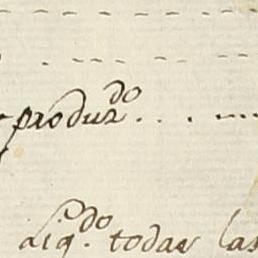 produz.do . . . ----
Liq.do todas las